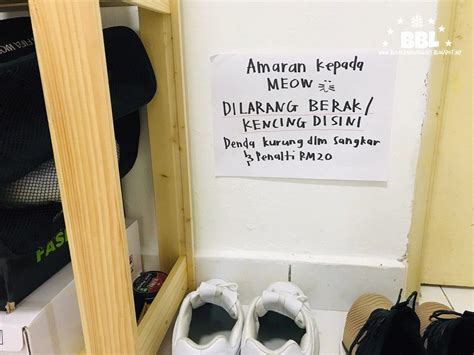 BBL
Amaran kepada
MEOW
DILARANG BERAK/
KENCING DISINI
Denda kurung dlm sangkar
Penalti RM20